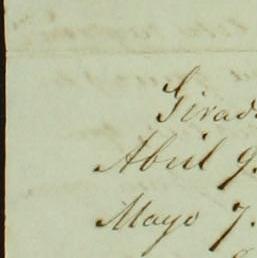 Girad
Abril 9.
Mayo 7.